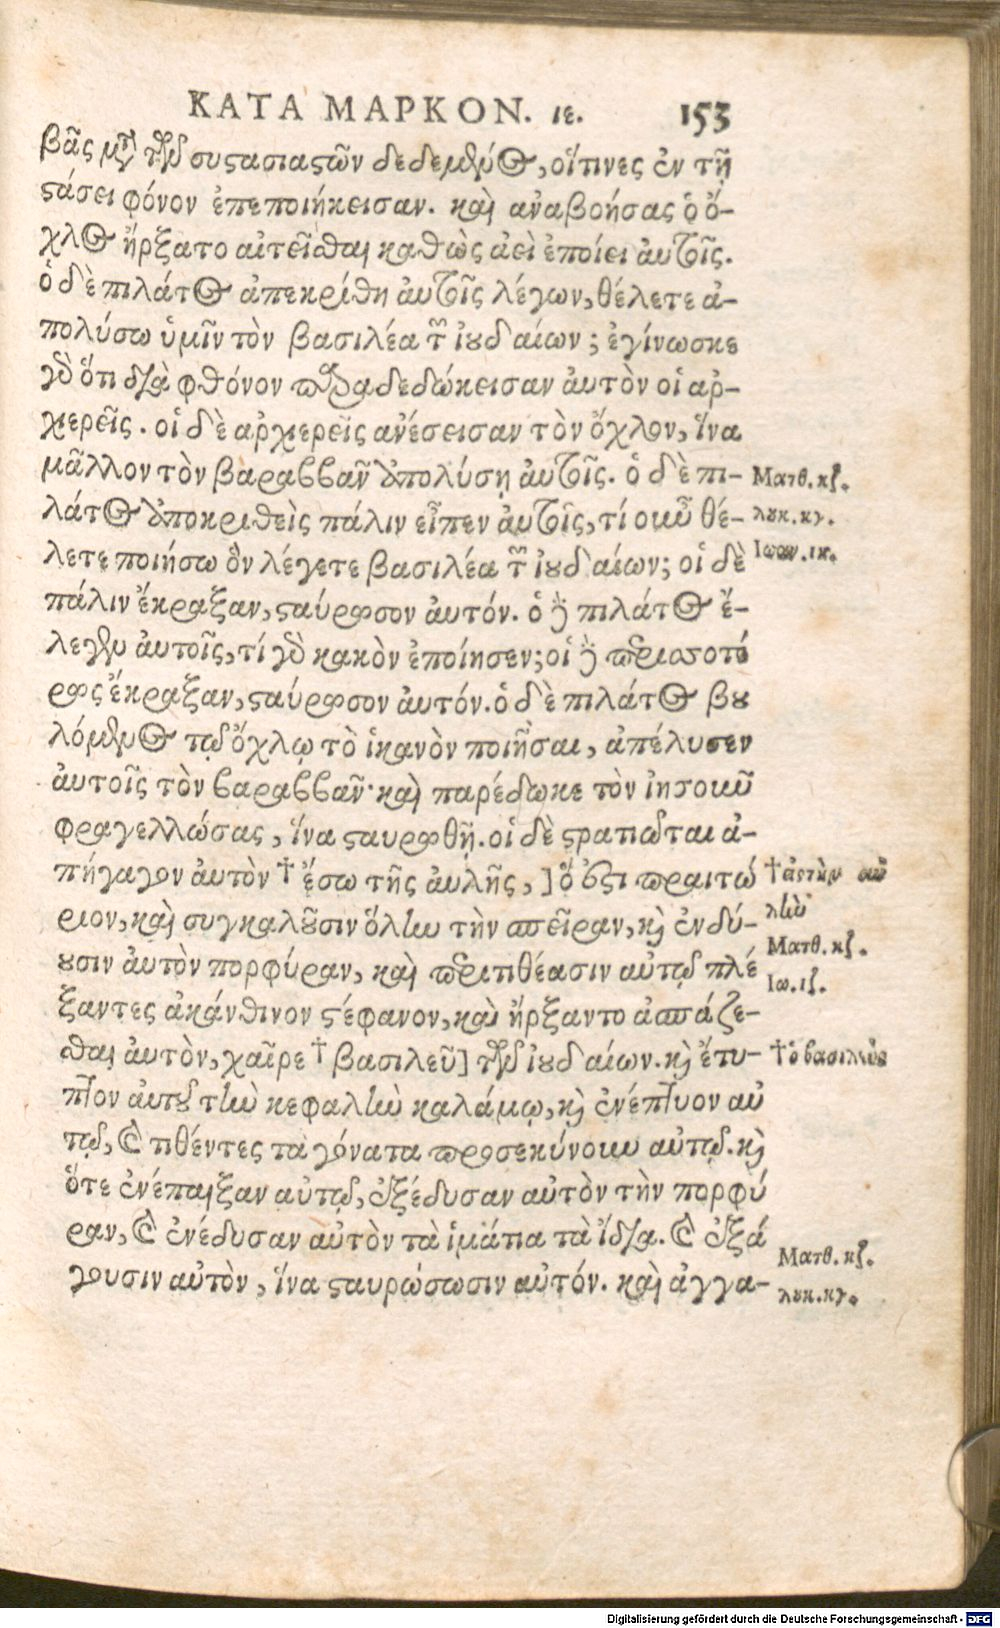 ΚΑΤΑ ΜΑΡΚΟΝ. ιε. 153
βᾶς μετὰ τῶν συςασιαςῶν δεδεμένος, οἵτινες ἐν τῇ
ςάσει φόνον ἐπεποιήκεισαν. καὶ ἀναβοήσας ὁ ὄ-
χλος ἤρξατο αἰτεῖσθαι καθὼς ἀεὶ ἐποίει ἀυτοῖς.
ὁ δὲ πιλάτος ἀπεκρίθη ἀυτοῖς λέγων, θέλετε ἀ-
πολύσω ὑμῖν τὸν βασιλέα τῶν ἰουδαίων; ἐγίνωσκε
γὰρ ὅτι διὰ φθόνον παραδεδώκεισαν ἀυτὸν οἱ αρ-
χιερεῖς. οἱ δὲ αρχιερεῖς ανέσεισαν τὸν ὄχλον, ἵνα
μᾶλλον τὸν βαραββᾶν ἀπολύσῃ ἀυτοῖς. ὁ δὲ πι-
λάτος ἀποκριθεὶς πάλιν εἶπεν ἀυτοῖς, τί οιω θέ-
λετε ποιήσω ὃν λέγετε βασιλέα τῶν ἰουδαίων; οἱ δὲ
πάλιν ἔκραξαν, ςαύρωσον ἀυτόν. ὁ δὲ πιλάτος ἔ-
λεγεν ἀυτοῖς, τί γὰρ κακὸν ἐποίησεν; οἱ δὲ περισσοτέ
ρως ἔκραξαν, ςαύρωσον ἀυτόν. ὁ δὲ πιλάτος βου
λόμενος τῷ ὄχλῳ τὸ ἱκανὸν ποιῆσαι, ἀπέλυσεν
ἀυτοῖς τὸν βαραββᾶν· καὶ παρέδωκε τὸν ἰησοῦν
φραγελλώσας, ἵνα ςαυρωθῇ. οἱ δὲ ςρατιῶται ἀ-
πήγαγον ἀυτὸν † ἔσω τῆς ἀυλῆς, ] ὅ ἐςι πραιτώ
ριον, καὶ συγκαλοῦσιν ὅλην τὴν σπεῖραν, καὶ ἐνδύ-
ουσιν ἀυτὸν πορφύραν, καὶ περιτιθέασιν αὐτῷ πλέ
ξαντες ἀκάνθινον ςέφανον, καὶ ἤρξαντο ἀσπάζε-
σθαι ἀυτὸν, χαῖρε † βασιλεῦ] τῶν ἰουδαίων. καὶ ἔτυ-
πτον ἀυτοῦ τὴν κεφαλὴν καλάμῳ, καὶ ἐνέπτυον αὐ
τῷ, καὶ τιθέντες τὰ γόνατα προσεκύνουν αὐτῷ. καὶ
ὅτε ἐνέπαιξαν αὐτῷ, ἐξέδυσαν αὐτὸν τὴν πορφύ
ραν, καὶ ἐνέδυσαν αὐτὸν τὰ ἱμάτια τὰ ἴδια. καὶ ἐξά
γουσιν αὐτὸν, ἵνα ςαυρώσωσιν αὐτόν. καὶ ἀγγα-
Ματθ. κζ.
λουκ. κγ.
Ιωαν. ιη.
† εἰς τὴν αὐ
λὴν
Ματθ. κζ.
Ιω. ιζ.
† ὁ βασιλεὺς
Ματθ. κζ.
λουκ. κγ.
Digitalisierung gefördert durch die Deutsche Forschungsgemeinschaft - DFG